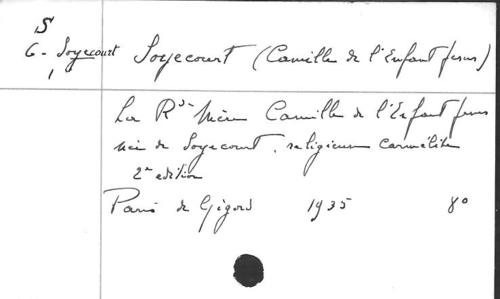 S
6 - Soyecourt Soyecourt (Camille de l'Enfant Jesus)
1
La Rde Mère Camille de l'Enfant Jesus
née de Soyecourt, religieuse carmélite
2e edition
Paris de Gigord 1935 8°